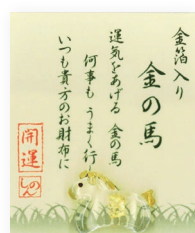 金箔入り
金の馬
運気をあげる 金の馬
何事も うまく行
いつも貴方のお財布に
開運